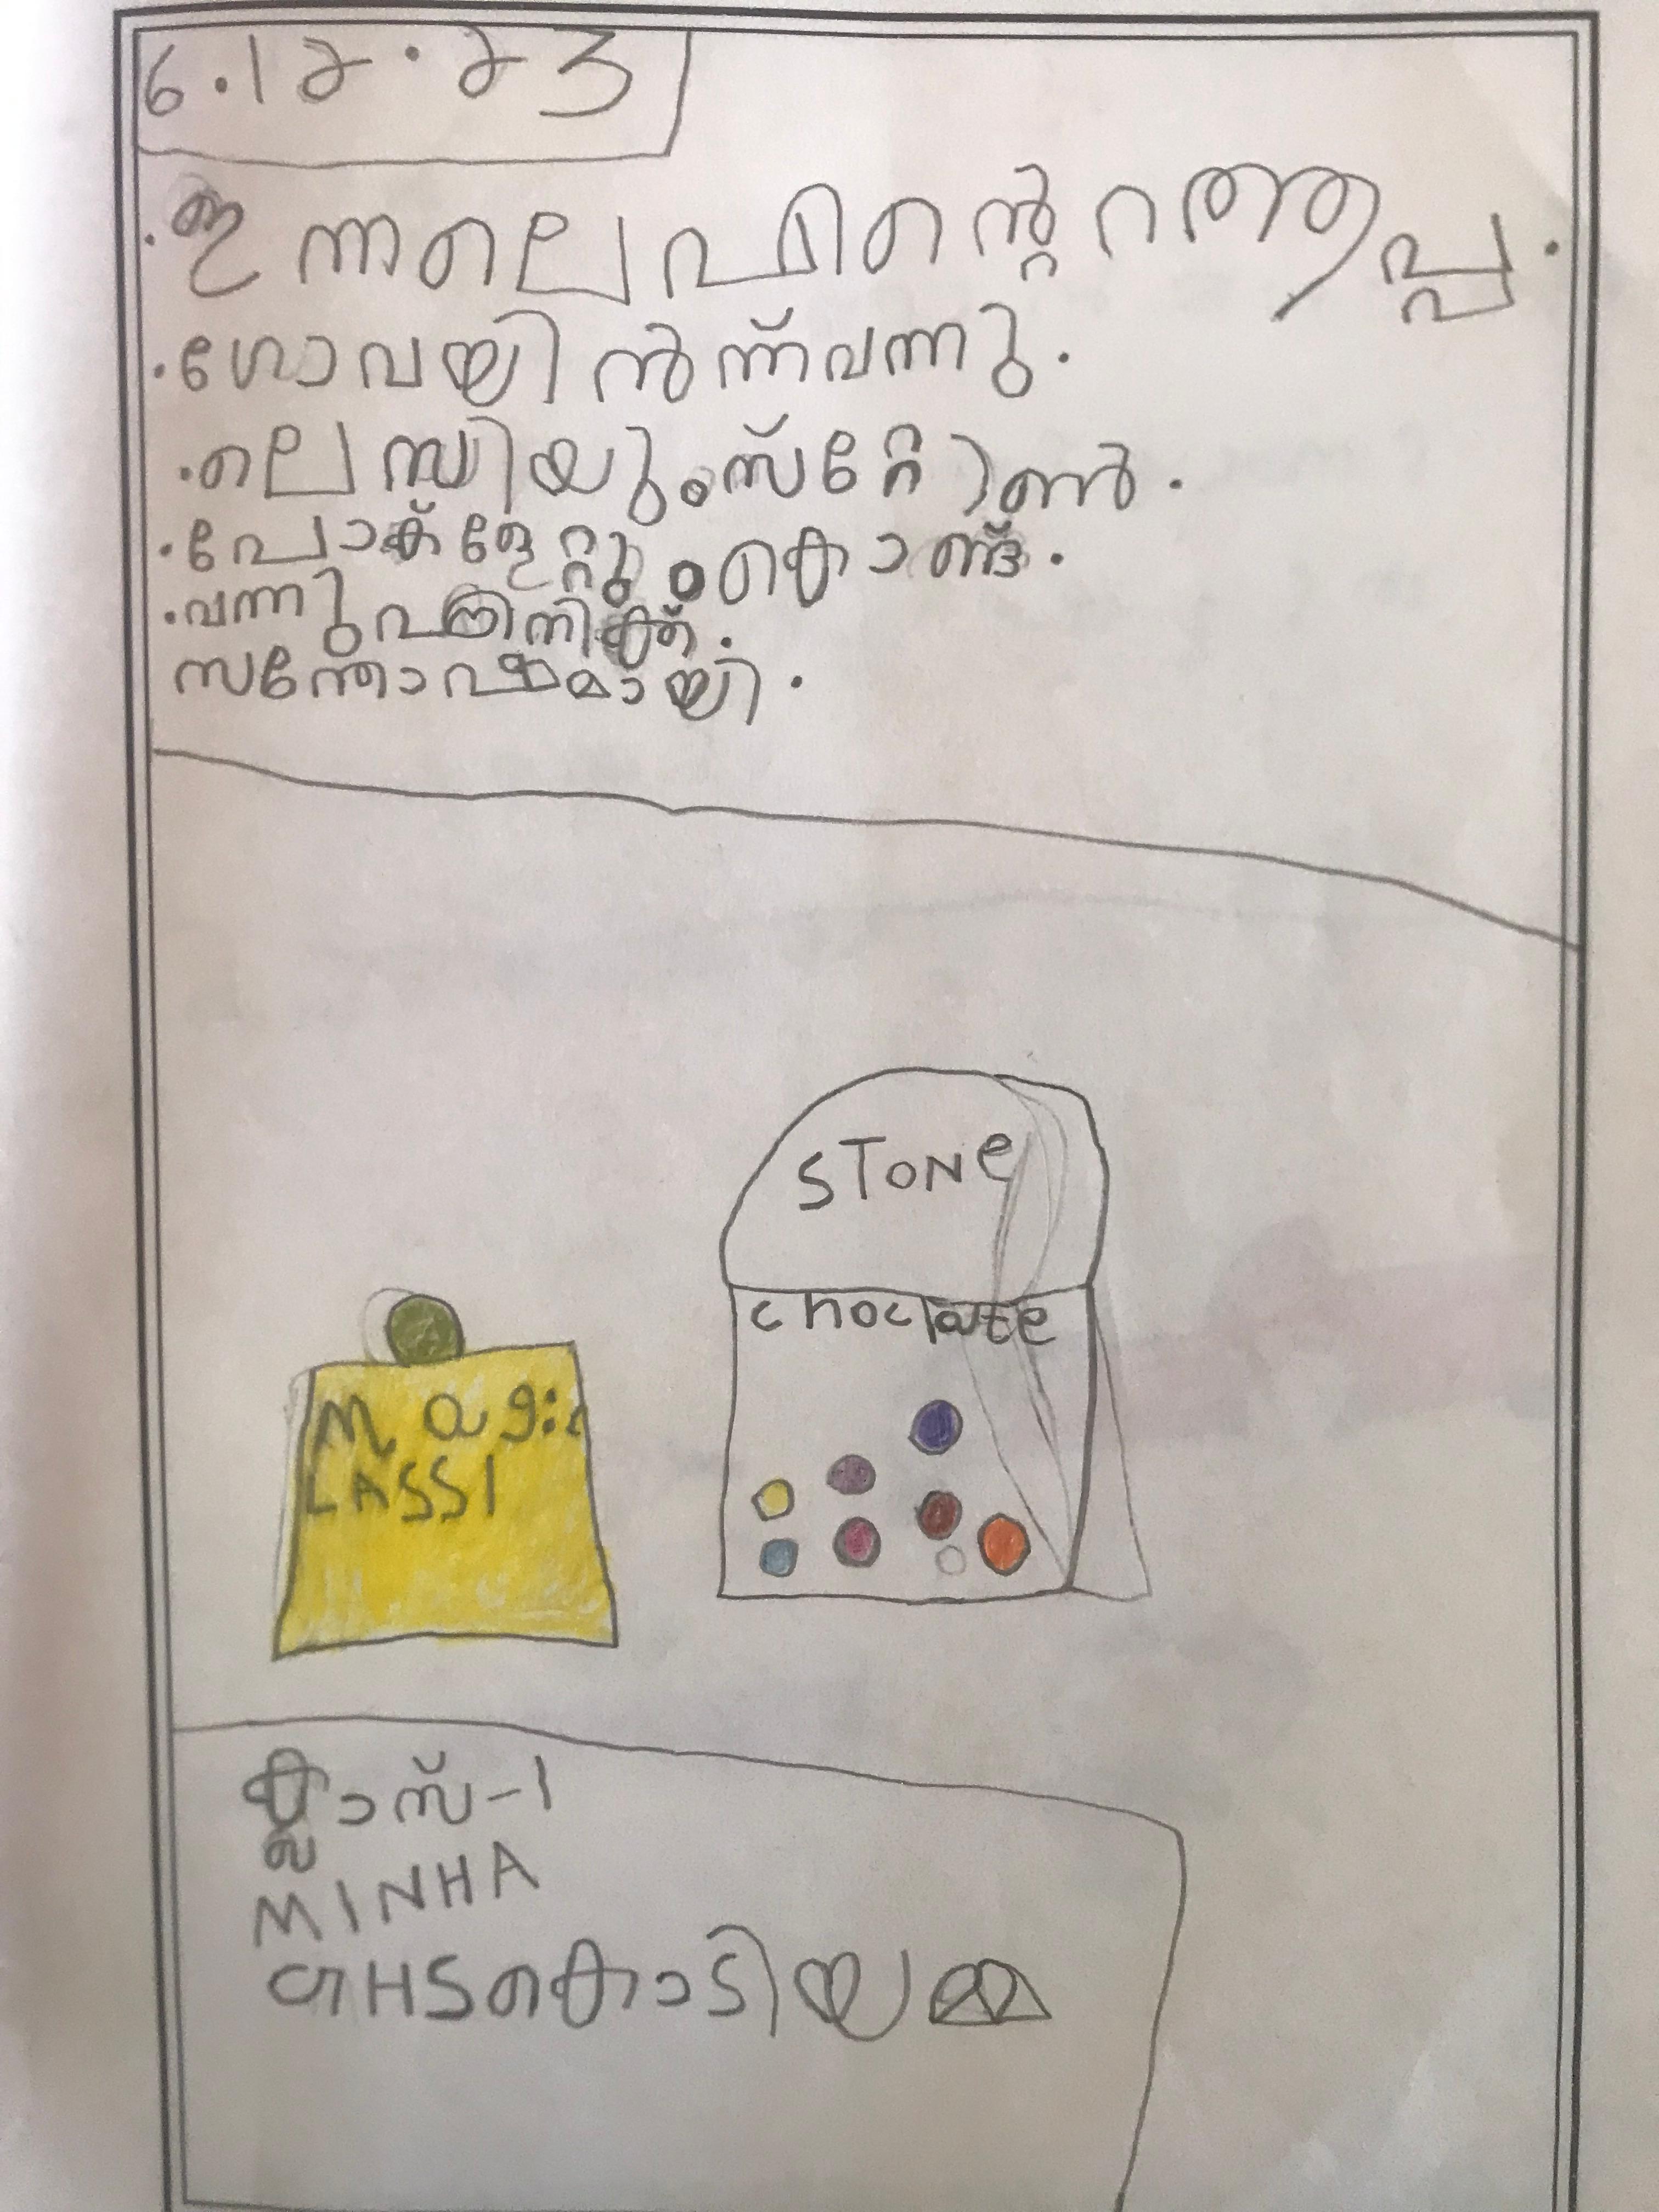 6.12.23
.ഇന്നലെ എന്റെ റത്തപ്പ.
.ഗോവയിൽന്ന് വന്നു.
.ലെസ്സിയും സ്റ്റോൺ.
.ചോക്ളേറ്റും കൊണ്ട്.
.വന്നു എനിക്ക്.
സന്തോഷമായി.
STONe
choclate
magic
LASSI
ക്ലാസ്-1
MINHA
GHS കൊടിയമ്മ